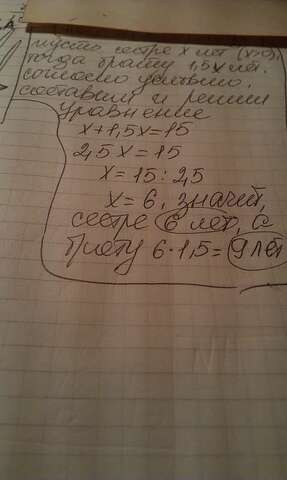 Пусть сестре x лет (x>0),
тогда брату 1,5x лет.
согласно условию,
составим и решим
уравнение
x+1,5x=15
2,5x=15
x=15:2,5
x=6, значит,
сестре 6 лет, а
брату 6·1,5=9 лет